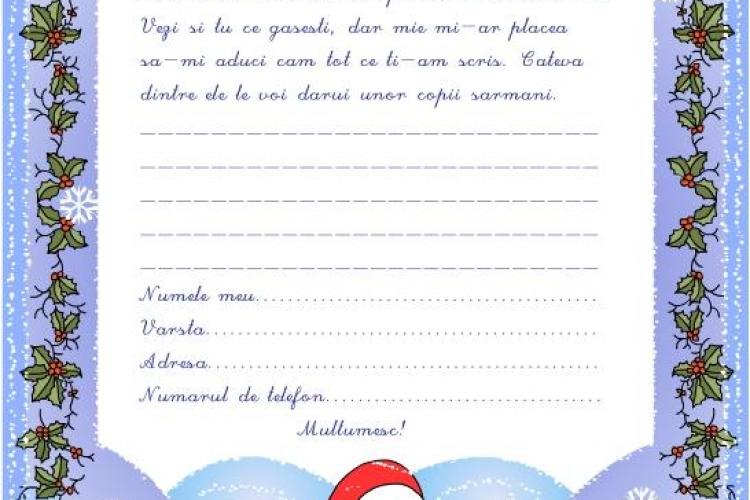 Vezi si tu ce gasesti, dar mie mi-ar placea
sa-mi aduci cam tot ce ti-am scris. Cateva
dintre ele le voi darui unor copii sarmani.
Numele meu
Varsta
Adresa
Numarul de telefon
Multumesc!